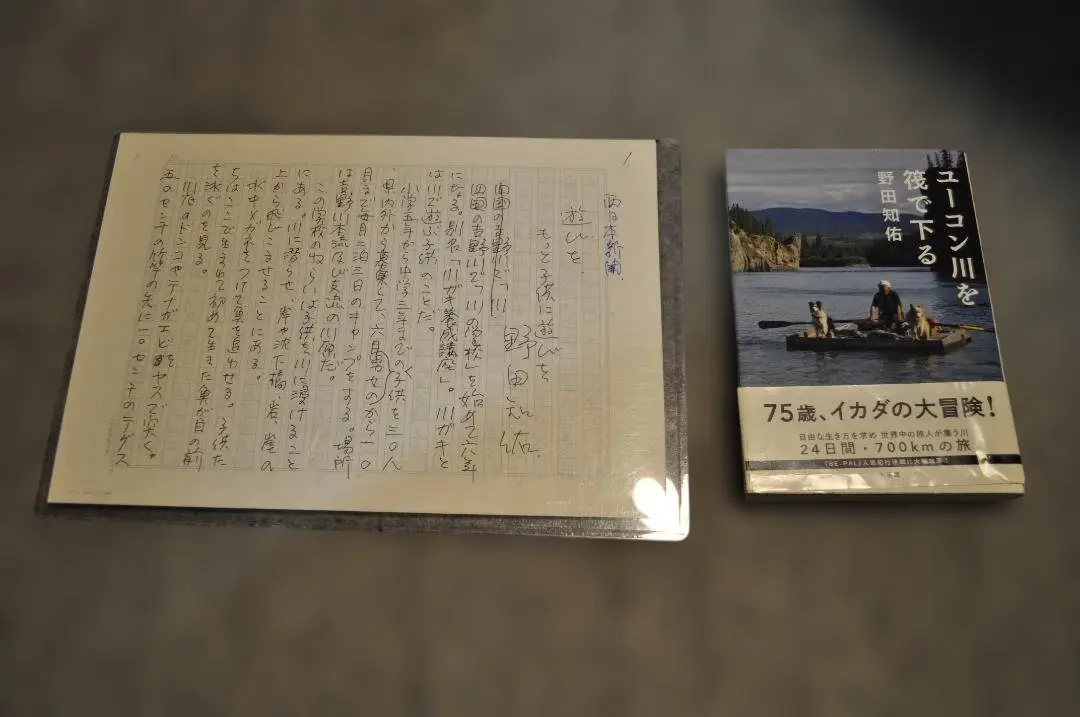 1
西日本新聞
遊びを
もっと子供に遊びを
野田知佑
四国の吉野川で「川の学校」を始めて六年
になる。別名「川ガキ養成講座」。川ガキと
は川で遊ぶ子供のことだ。
小学五年から中学三年までの子供を三〇人
、県内外から募集して、六月から一〇
月まで毎月二泊三日のキャンプをする。場所
は吉野川本流及び支流の川原だ。
この学校のねらいは子供を川に浸けること
にある。川に潜らせ、岸や沈下橋、岩、崖の
上から飛びこませることにある。
水中メガネをつけて魚を追わせる。子供た
ちはここで生まれて初めて生きた魚が目の前
を泳ぐのを見る。
川底のドンコやテナガエビをヤスで突く。
五〇センチの竹竿の先に一〇センチのテグス
ユーコン川を
筏で下る
野田知佑
75歳、イカダの大冒険!
自由な生き方を求め 世界中の旅人が集う川
24日間・700kmの旅
「BE-PAL」人気紀行連載に大幅加筆!
小学館